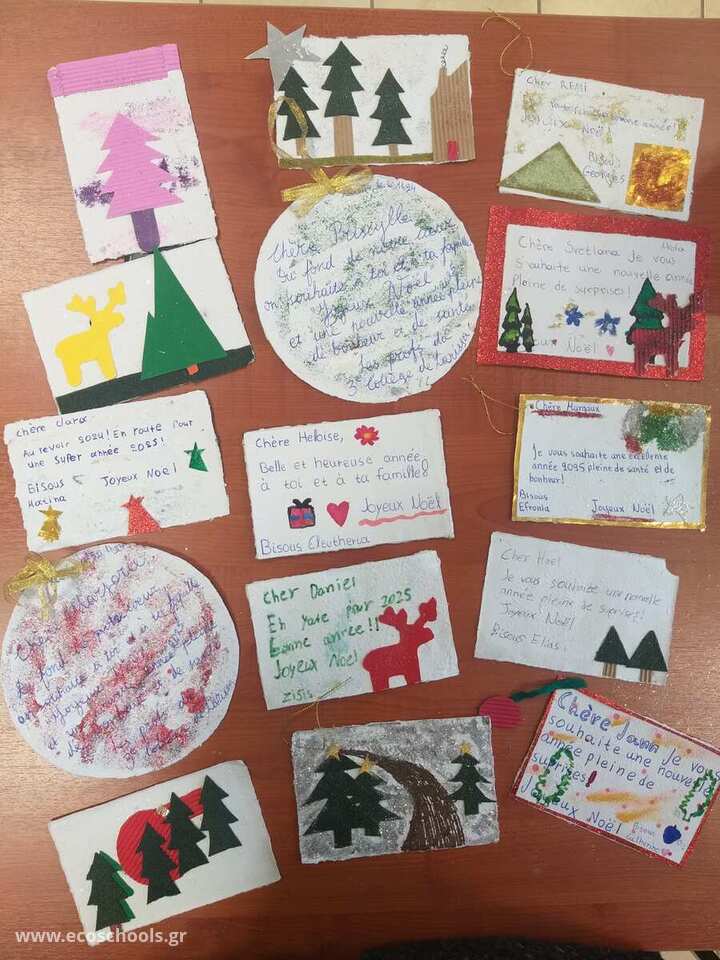 Cher REMI
bonne année!
Joyeux Noël!
Bisous
Georges
Chère Prissylle
Du fond de notre cœur
on souhaite à toi et à ta famille
Joyeux Noël
et une nouvelle année pleine
de bonheur et de santé
Les profs du
3e collège de Larissa
Chère Svetlana Je vous
souhaite une nouvelle année
pleine de surprises!
Joux Noël
Chère Clara
Au revoir 2024! En route pour
une super année 2025!
Bisous Joyeux Noël
Marina
Chère Heloise,
Belle et heureuse année
à toi et à ta famille!
Joyeux Noël
Bisous Eleutheria
Chère Margaux
Je vous souhaite une excellente
année 2025 pleine de santé et de
bonheur!
Bisous
Efronia Joyeux Noël
Cher Daniel
En route pour 2025
bonne année!!
Joyeux Noel
Zisis
Je vous souhaite une nouvelle
année pleine de suprises!
Joyeux Noël
Bisous Elias
Chère
fond de notre cœur
on souhaite à toi et à ta famille
Joyeux
Chère Jann Je vous
souhaite une nouvelle
année pleine de
suprises!
Joyeux Noël
Bisous
Catherine
www.ecoschools.gr